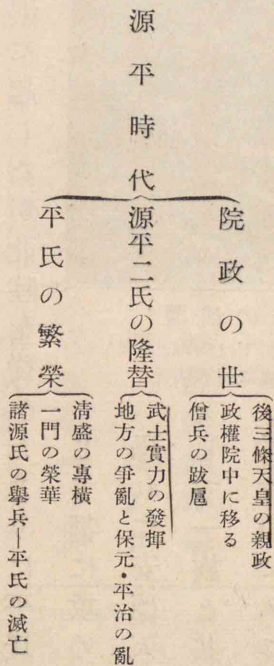 源平時代
院政の世
後三條天皇の親政
政權院中に移る
僧兵の跋扈
源平二氏の隆替
武士實力の發揮
地方の爭亂と保元・平治の亂
平氏の繁榮
淸盛の專橫
一門の榮華
諸源氏の擧兵―平氏の滅亡